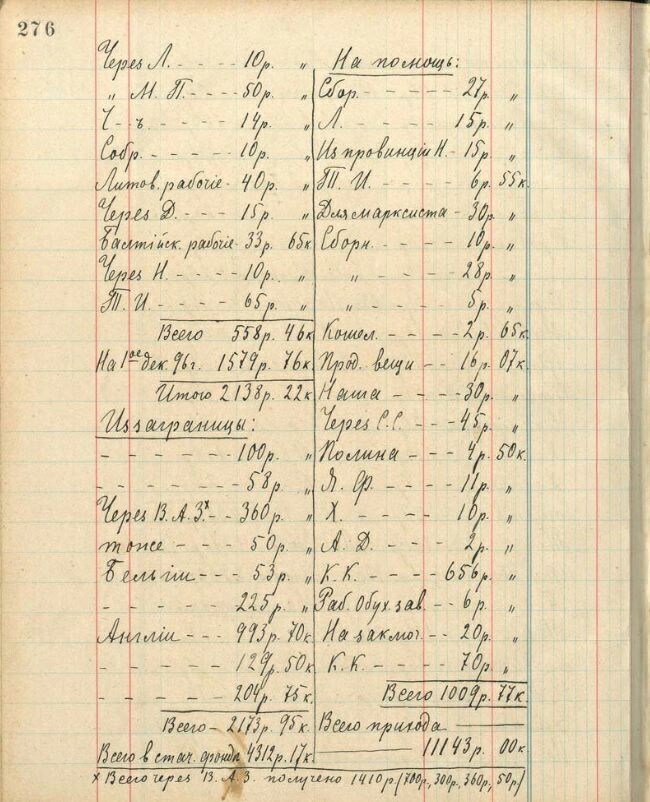 276
Через Л. - - - - 10р. „
„ М. П. - - - - 50р. „
Ч - ъ - - - - 14р. „
Собр. - - - - - 10р. „
Литов. рабочіе - 40р. „
Через Д. - - - - 15р. „
Балтійск. рабочіе - 33р. 65к.
Через Н. - - - - 10р. „
Т. И. - - - - 65р. „
Всего 558р. 46к
На 1ое дек. 96г. 1579р. 76к.
Итого 2138р. 22к
Из заграницы:
- - - - - - 100р. „
- - - - - - 58р. „
Через В. А. З.х - - 360р. „
тоже - - - 50р. „
Бельгіи - - - 53р. „
- - - - - 225р. „
Англіи - - - 993р. 70к
- - - - - 129р. 50к
- - - - - 204р. 75к.
Всего - 2173р. 95к.
Всего в стач. фонде 4312р. 17к
На помощь:
Сбор. - - - - - 27р. „
Л. - - - - - 15р. „
Из провинціи Н. - 15р. „
Т. И. - - - - 6р. 55к.
Для марксиста - 30р. „
Сборн. - - - - 10р. „
„ - - - - 28р. „
„ - - - - 5р. „
Кошел. - - - - 2р. 65к.
Прод. вещи - - 16р. 07к.
Наша - - - - 30р. „
Через С. С. - - - 45р. „
Полина - - - 4р. 50к.
Я. Ф. - - - - 11р. „
Х. - - - - 10р. „
А. Д. - - - - 2р. „
К. К. - - - - 656р. „
Раб. Обух. зав. - - 6р. „
На заключ. - - 20р. „
К. К. - - - - 70р. „
Всего 1009р. 77к.
Всего прихода
11143р. 00к.
х Всего через В. А. З. получено 1410р. (700р., 300р., 360р., 50р.)